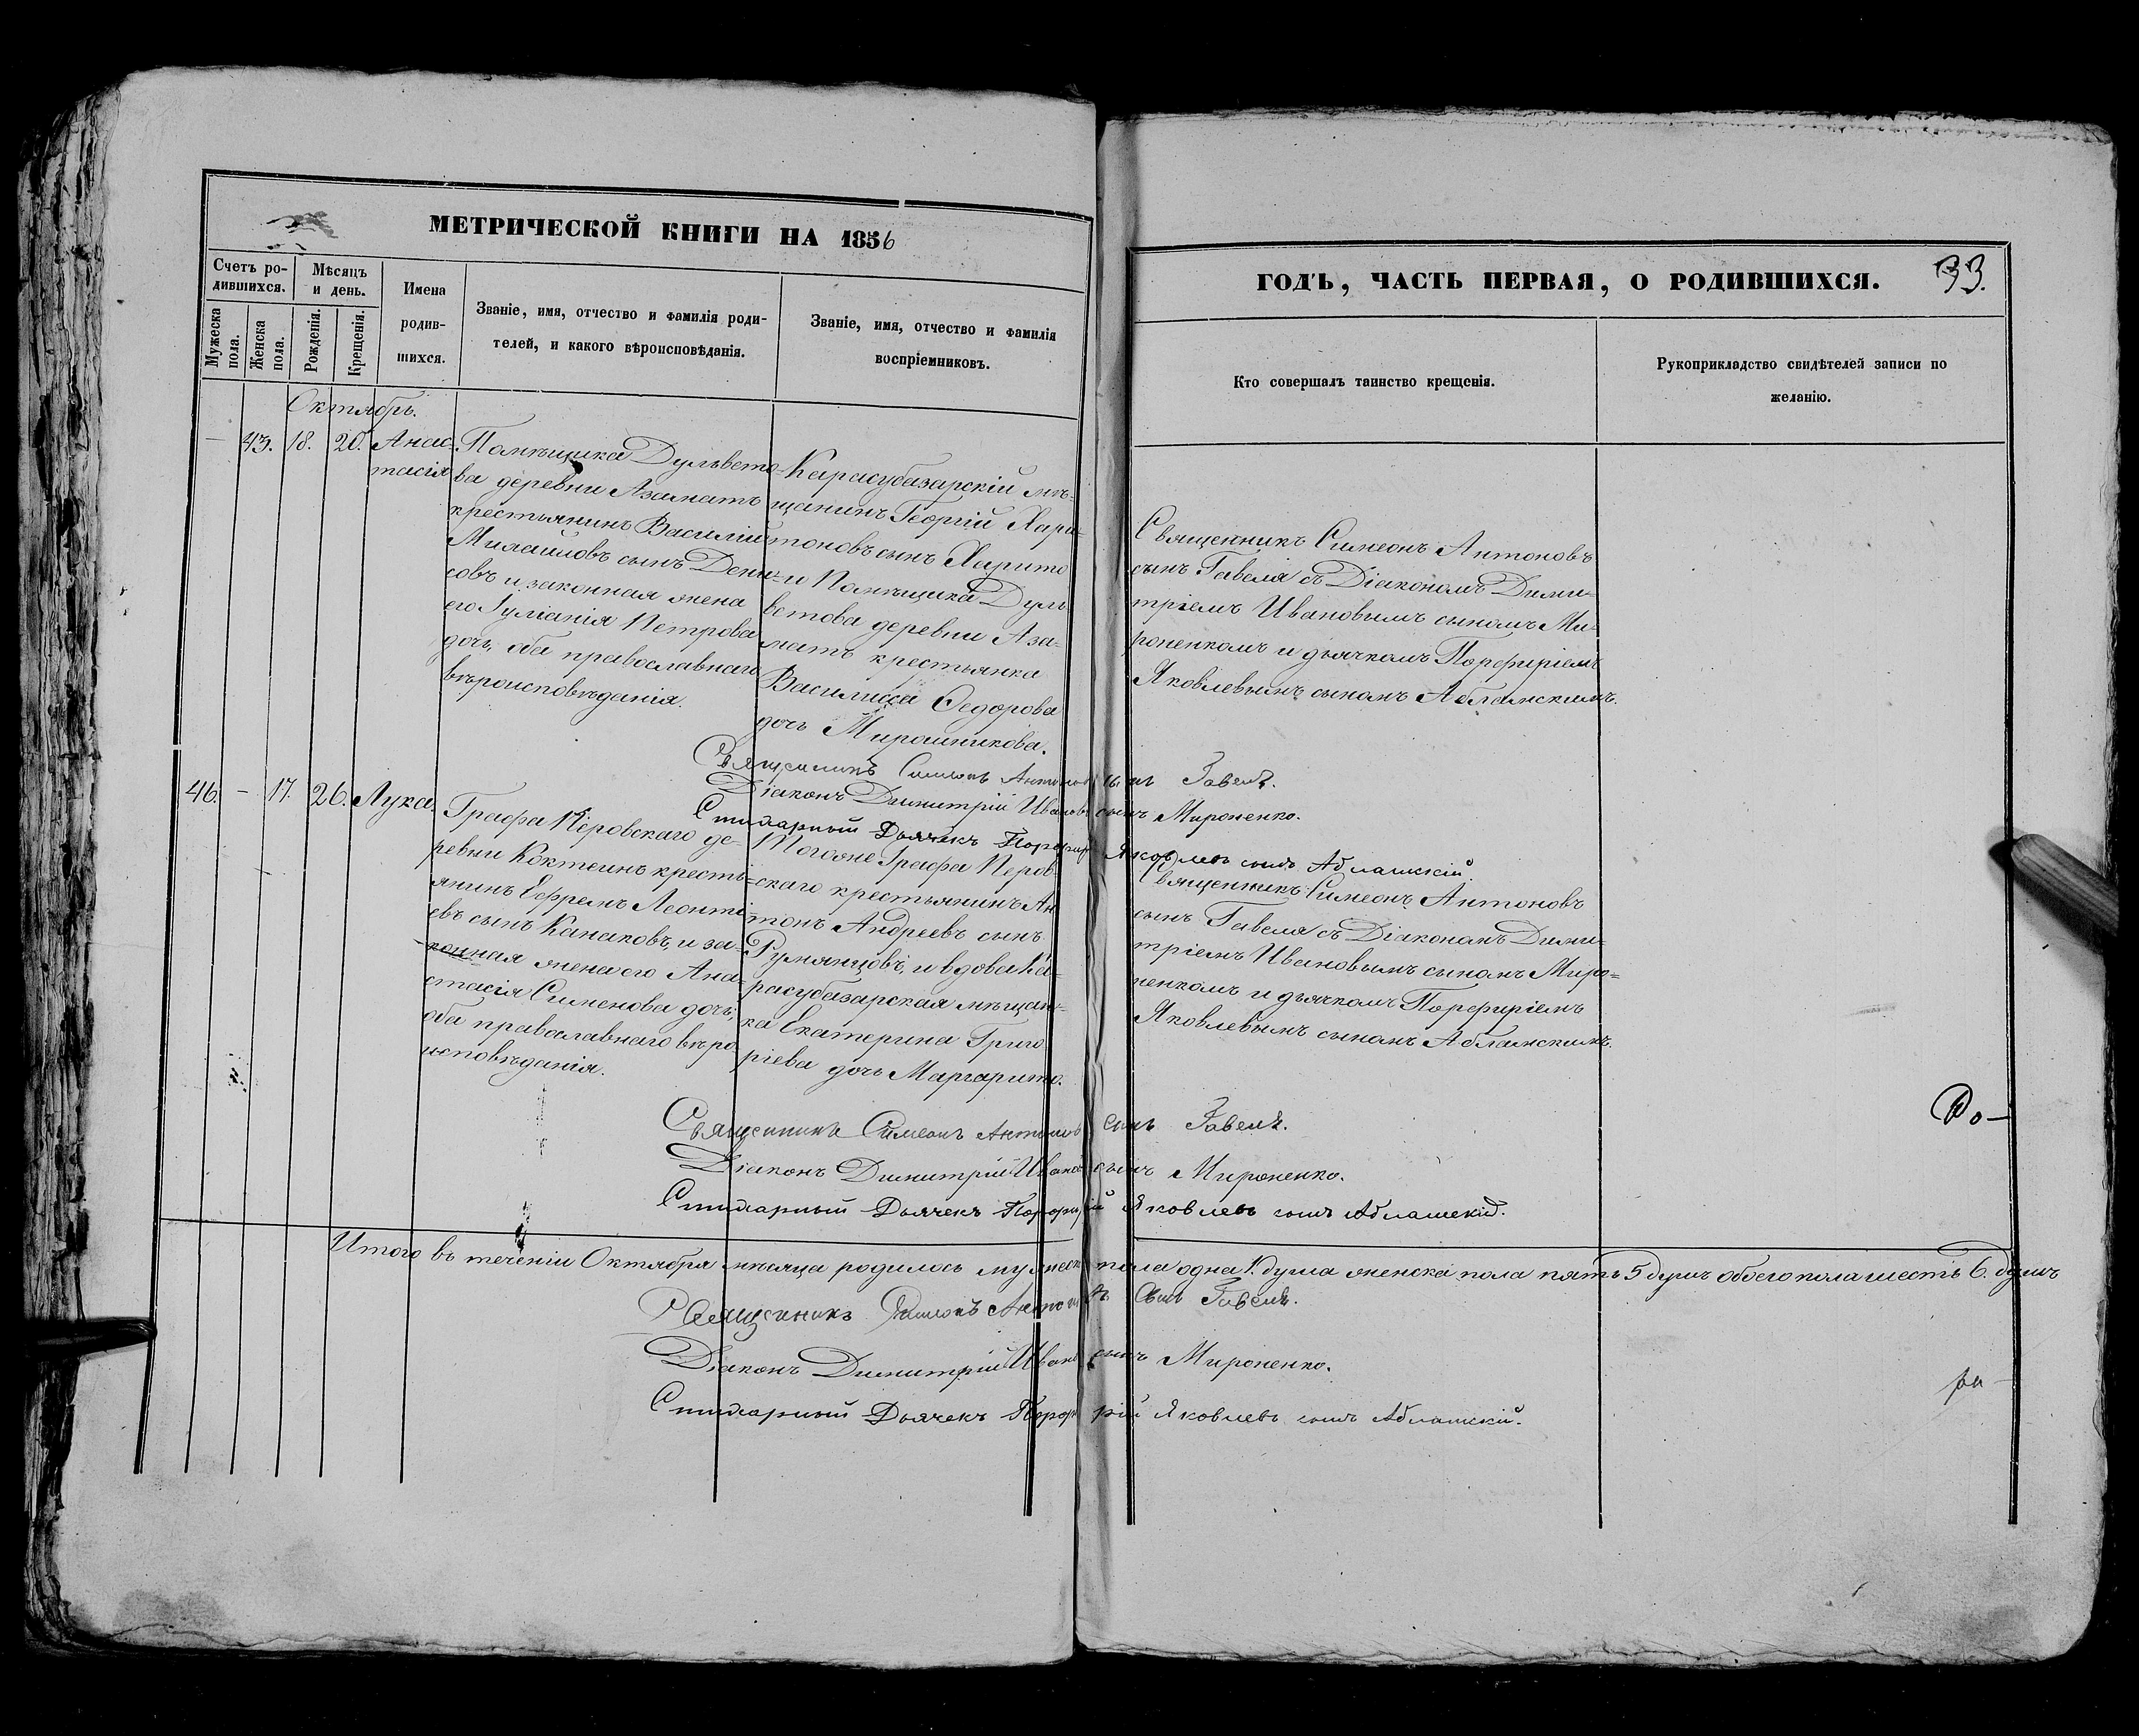 МЕТРИЧЕСКОЙ КНИГИ НА 1856
Счетъ ро-
дившихся.
Мѣсяцъ
и день.
Мужеска
пола.
Женска
пола.
Рожденія.
Крещенія.
Имена
родив-
шихся.
Званіе, имя, отчество и фамилія роди-
телей, и какого вѣроисповѣданія.
Званіе, имя, отчество и фамилія
воспріемниковъ.
ГОДЪ, ЧАСТЬ ПЕРВАЯ, О РОДИВШИХСЯ.
33.
Кто совершалъ таинство крещенія.
Рукоприкладство свидѣтелей записи по
желанію.
Октябрь.
— 43. 18. 20. Анас-
тасія
Помѣщика Дульвето-
ва деревни Азаматъ
крестьянинъ Василій
Михайловъ сынъ Дени-
совъ и законная жена
его Іуліанія Петрова
дочь, оба православнаго
вѣроисповѣданія.
Карасубазарскій мѣ-
щанинъ Георгій Хари-
тоновъ сынъ Харито
и Помѣщика Дуль
ветова деревни Аза-
матъ крестьянка
Василисса Ѳедорова
дочь Мирошникова.
Священникъ Симеонъ Антоновъ
сынъ Гавеля съ Діакономъ Дими-
тріемъ Ивановымъ сыномъ Ми-
роненкомъ и дьячкомъ Порфиріемъ
Яковлевымъ сыномъ Абламскимъ.
Священникъ Симеонъ Антоновъ сынъ Гавеля.
Діаконъ Димитрій Ивановъ сынъ Мироненко.
Стихарный Дьячекъ Порфирій Яковлевъ сынъ Абламскій.
46. — 17. 26. Лука.
Графа Перовскаго де-
ревни Коктеинъ кресть-
янинъ Ефремъ Леонті
евъ сынъ Канаковъ, и за-
конная жена его Ана-
стасія Сименова дочь,
оба православнаго вѣро
исповѣданія.
Тогоже Графа Перов-
скаго крестьянинъ Ан
тонъ Андреевъ сынъ
Румянцовъ, и вдова Ка-
расубазарская мѣщан-
ка Екатерина Григо
ріева дочь Маргарито.
Священникъ Симеонъ Антоновъ
сынъ Гавеля съ Діакономъ Дими-
тріемъ Ивановымъ сыномъ Миро=
ненкомъ и дьячкомъ Порфиріемъ
Яковлевымъ сыномъ Абламскимъ.
Священникъ Симеонъ Антоновъ сынъ Гавеля.
Діаконъ Димитрій Ивановъ сынъ Мироненко.
Стихарный Дьячекъ Порфирій Яковлевъ сынъ Абламскій.
Итого въ теченіи Октября мѣсяца родилось мужеск пола одна 1. душа женска пола пять 5 душъ обоего пола шесть 6. душъ
Священникъ Симеонъ Антоновъ сынъ Гавеля.
Діаконъ Димитрій Ивановъ сынъ Мироненко.
Стихарный Дьячекъ Порфирій Яковлевъ сынъ Абламскій.